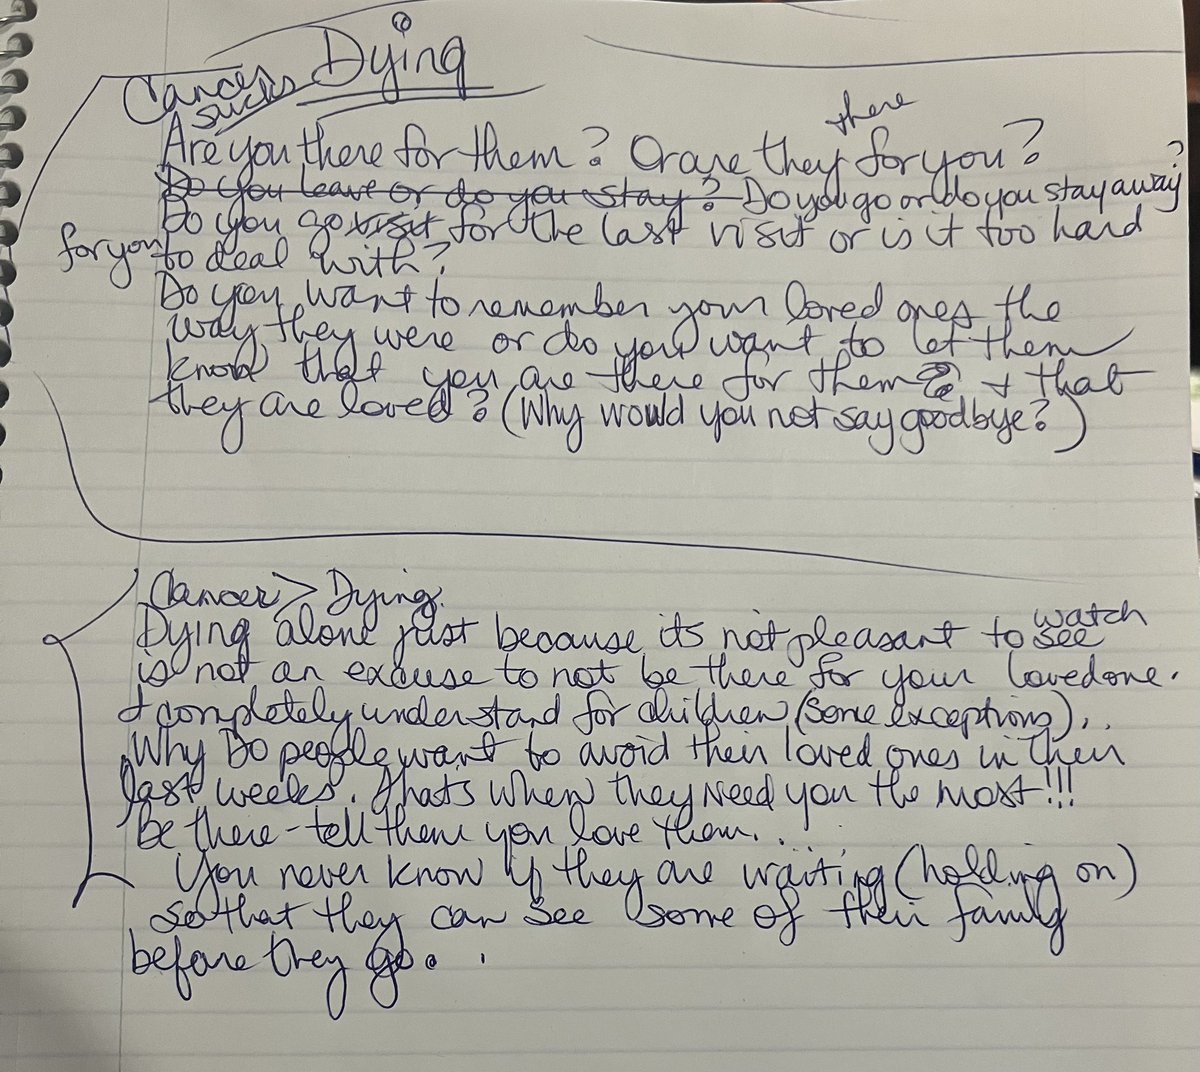 Cancer sucks Dying
Are you there for them? Or are they there for you?
~~Do you leave or do you stay?~~ Do you go or do you stay away?
Do you go ~~visit~~ for the last visit or is it too hard
for you to deal with?
Do you want to remember your loved ones the
way they were or do you want to let them
know that you are there for them & that
they are loved? (Why would you not say goodbye?)
Cancer > Dying.
Dying alone just because its not pleasant to see watch
is not an excuse to not be there for your loved one.
I completely understand for children (some exceptions)..
Why Do people want to avoid their loved ones in their
last weeks. Thats when they need you the most!!!
Be there - tell them you love them...
You never know if they are waiting (holding on)
so that they can see some of their family
before they go..